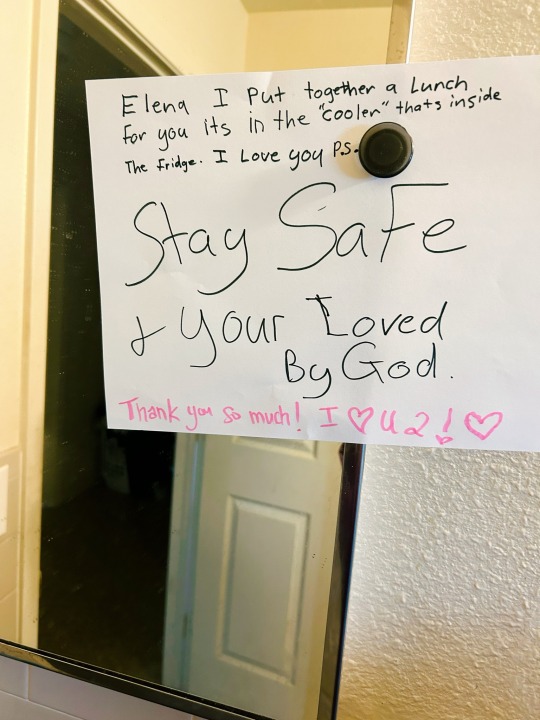 Elena I Put together a Lunch
for you its in the "cooler" thats inside
The fridge. I Love you P.S.
Stay Safe
& your Loved
By God.
Thank you so much! I ♡ U 2! ♡